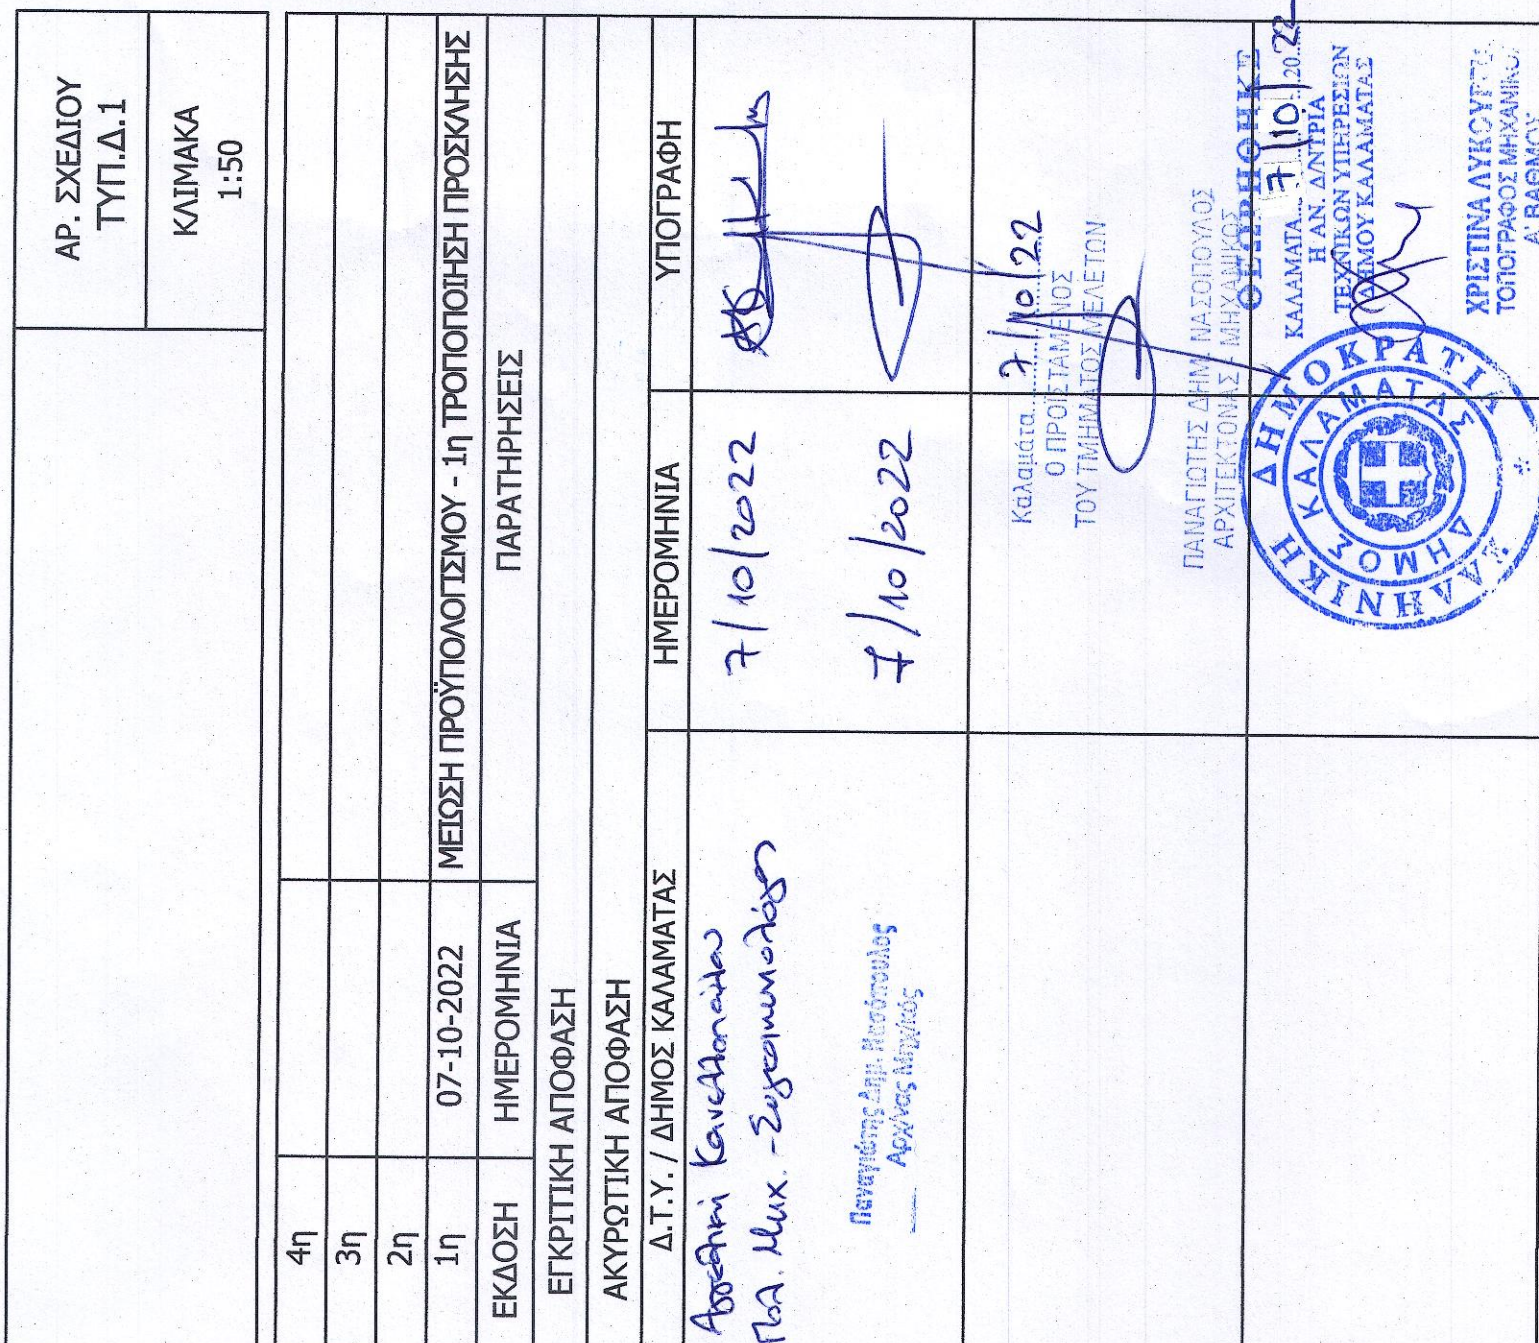 ΑΡ. ΣΧΕΔΙΟΥ
ΤΥΠ.Δ.1
ΚΛΙΜΑΚΑ
1:50
4η
3η
2η
1η 07-10-2022 ΜΕΙΩΣΗ ΠΡΟΫΠΟΛΟΓΙΣΜΟΥ - 1η ΤΡΟΠΟΠΟΙΗΣΗ ΠΡΟΣΚΛΗΣΗΣ
ΕΚΔΟΣΗ ΗΜΕΡΟΜΗΝΙΑ ΠΑΡΑΤΗΡΗΣΕΙΣ
ΕΓΚΡΙΤΙΚΗ ΑΠΟΦΑΣΗ
ΑΚΥΡΩΤΙΚΗ ΑΠΟΦΑΣΗ
Δ.Τ.Υ. / ΔΗΜΟΣ ΚΑΛΑΜΑΤΑΣ ΗΜΕΡΟΜΗΝΙΑ ΥΠΟΓΡΑΦΗ
Αγγελική Κανελλοπούλου
Πολ. Μηχ. - Συγκοινωνιολόγος
7/10/2022
Παναγιώτης Δημ. Νασόπουλος
Αρχ/νας Μηχ/κός
7/10/2022
Καλαμάτα 7/10/22
Ο ΠΡΟΪΣΤΑΜΕΝΟΣ
ΤΟΥ ΤΜΗΜΑΤΟΣ ΜΕΛΕΤΩΝ
ΠΑΝΑΓΙΩΤΗΣ ΔΗΜ. ΝΑΣΟΠΟΥΛΟΣ
ΑΡΧΙΤΕΚΤΟΝΑΣ - ΜΗΧΑΝΙΚΟΣ
ΘΕΩΡΗΘΗΚΕ
ΚΑΛΑΜΑΤΑ 7/10/2022
Η ΑΝ. Δ/ΝΤΡΙΑ
ΤΕΧΝΙΚΩΝ ΥΠΗΡΕΣΙΩΝ
ΔΗΜΟΥ ΚΑΛΑΜΑΤΑΣ
ΧΡΙΣΤΙΝΑ
ΤΟΠΟΓΡΑΦΟΣ ΜΗΧΑΝΙΚΟΣ
Α' ΒΑΘΜΟΥ
ΕΛΛΗΝΙΚΗ ΔΗΜΟΚΡΑΤΙΑ
ΔΗΜΟΣ ΚΑΛΑΜΑΤΑΣ